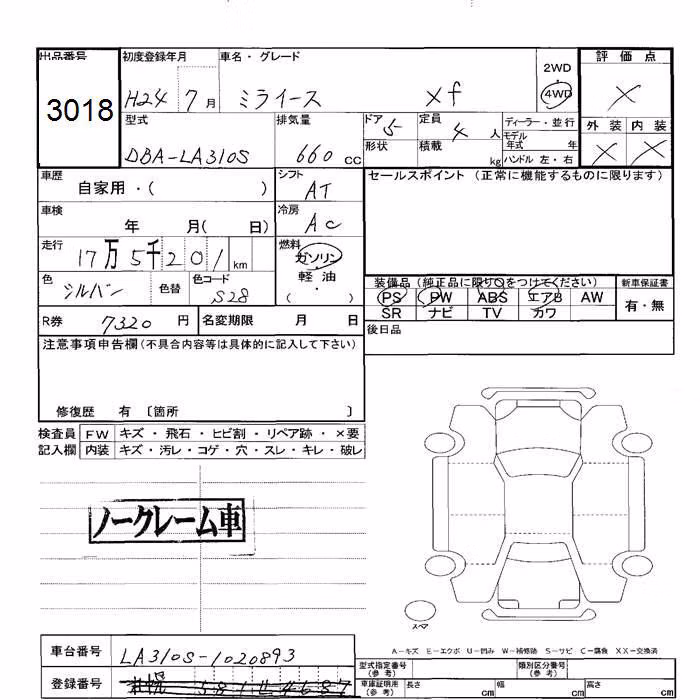 出品番号 初度登録年月 車名・グレード 評価点
3018 H24 7月 ミライース Xf 2WD 4WD ×
型式 排気量 ドア 5 定員 4人 ディーラー・並行 外装 内装
DBA-LA310S 660cc 形状 積載 kg モデル年式 年 × ×
ハンドル 左・右
車歴 自家用・( ) シフト AT セールスポイント(正常に機能するものに限ります)
車検 年 月( 日) 冷房 AC
走行 17万5千201km 燃料 ガソリン・軽油
色 シルバー 色替 色コード S28 ( ) 装備品(純正品に限り○をつけてください) 新車保証書
PS PW ABS エアB AW 有・無
R券 7320円 名変期限 月 日 SR ナビ TV カワ
注意事項申告欄(不具合内容等は具体的に記入して下さい) 後日品
修復歴 有 〔箇所 〕
検査員 FW キズ・飛石・ヒビ割・リペア跡・×要
記入欄 内装 キズ・汚レ・コゲ・穴・スレ・キレ・破レ
ノークレーム車
スマ
A-キズ E-エクボ U-凹み W-補修跡 S-サビ C-腐食 XX-交換済
車台番号 LA310S-1020893
型式指定番号(参考) 類別区分番号(参考)
登録番号 札幌
車庫証明用(参考) 長さ cm 幅 cm 高さ cm